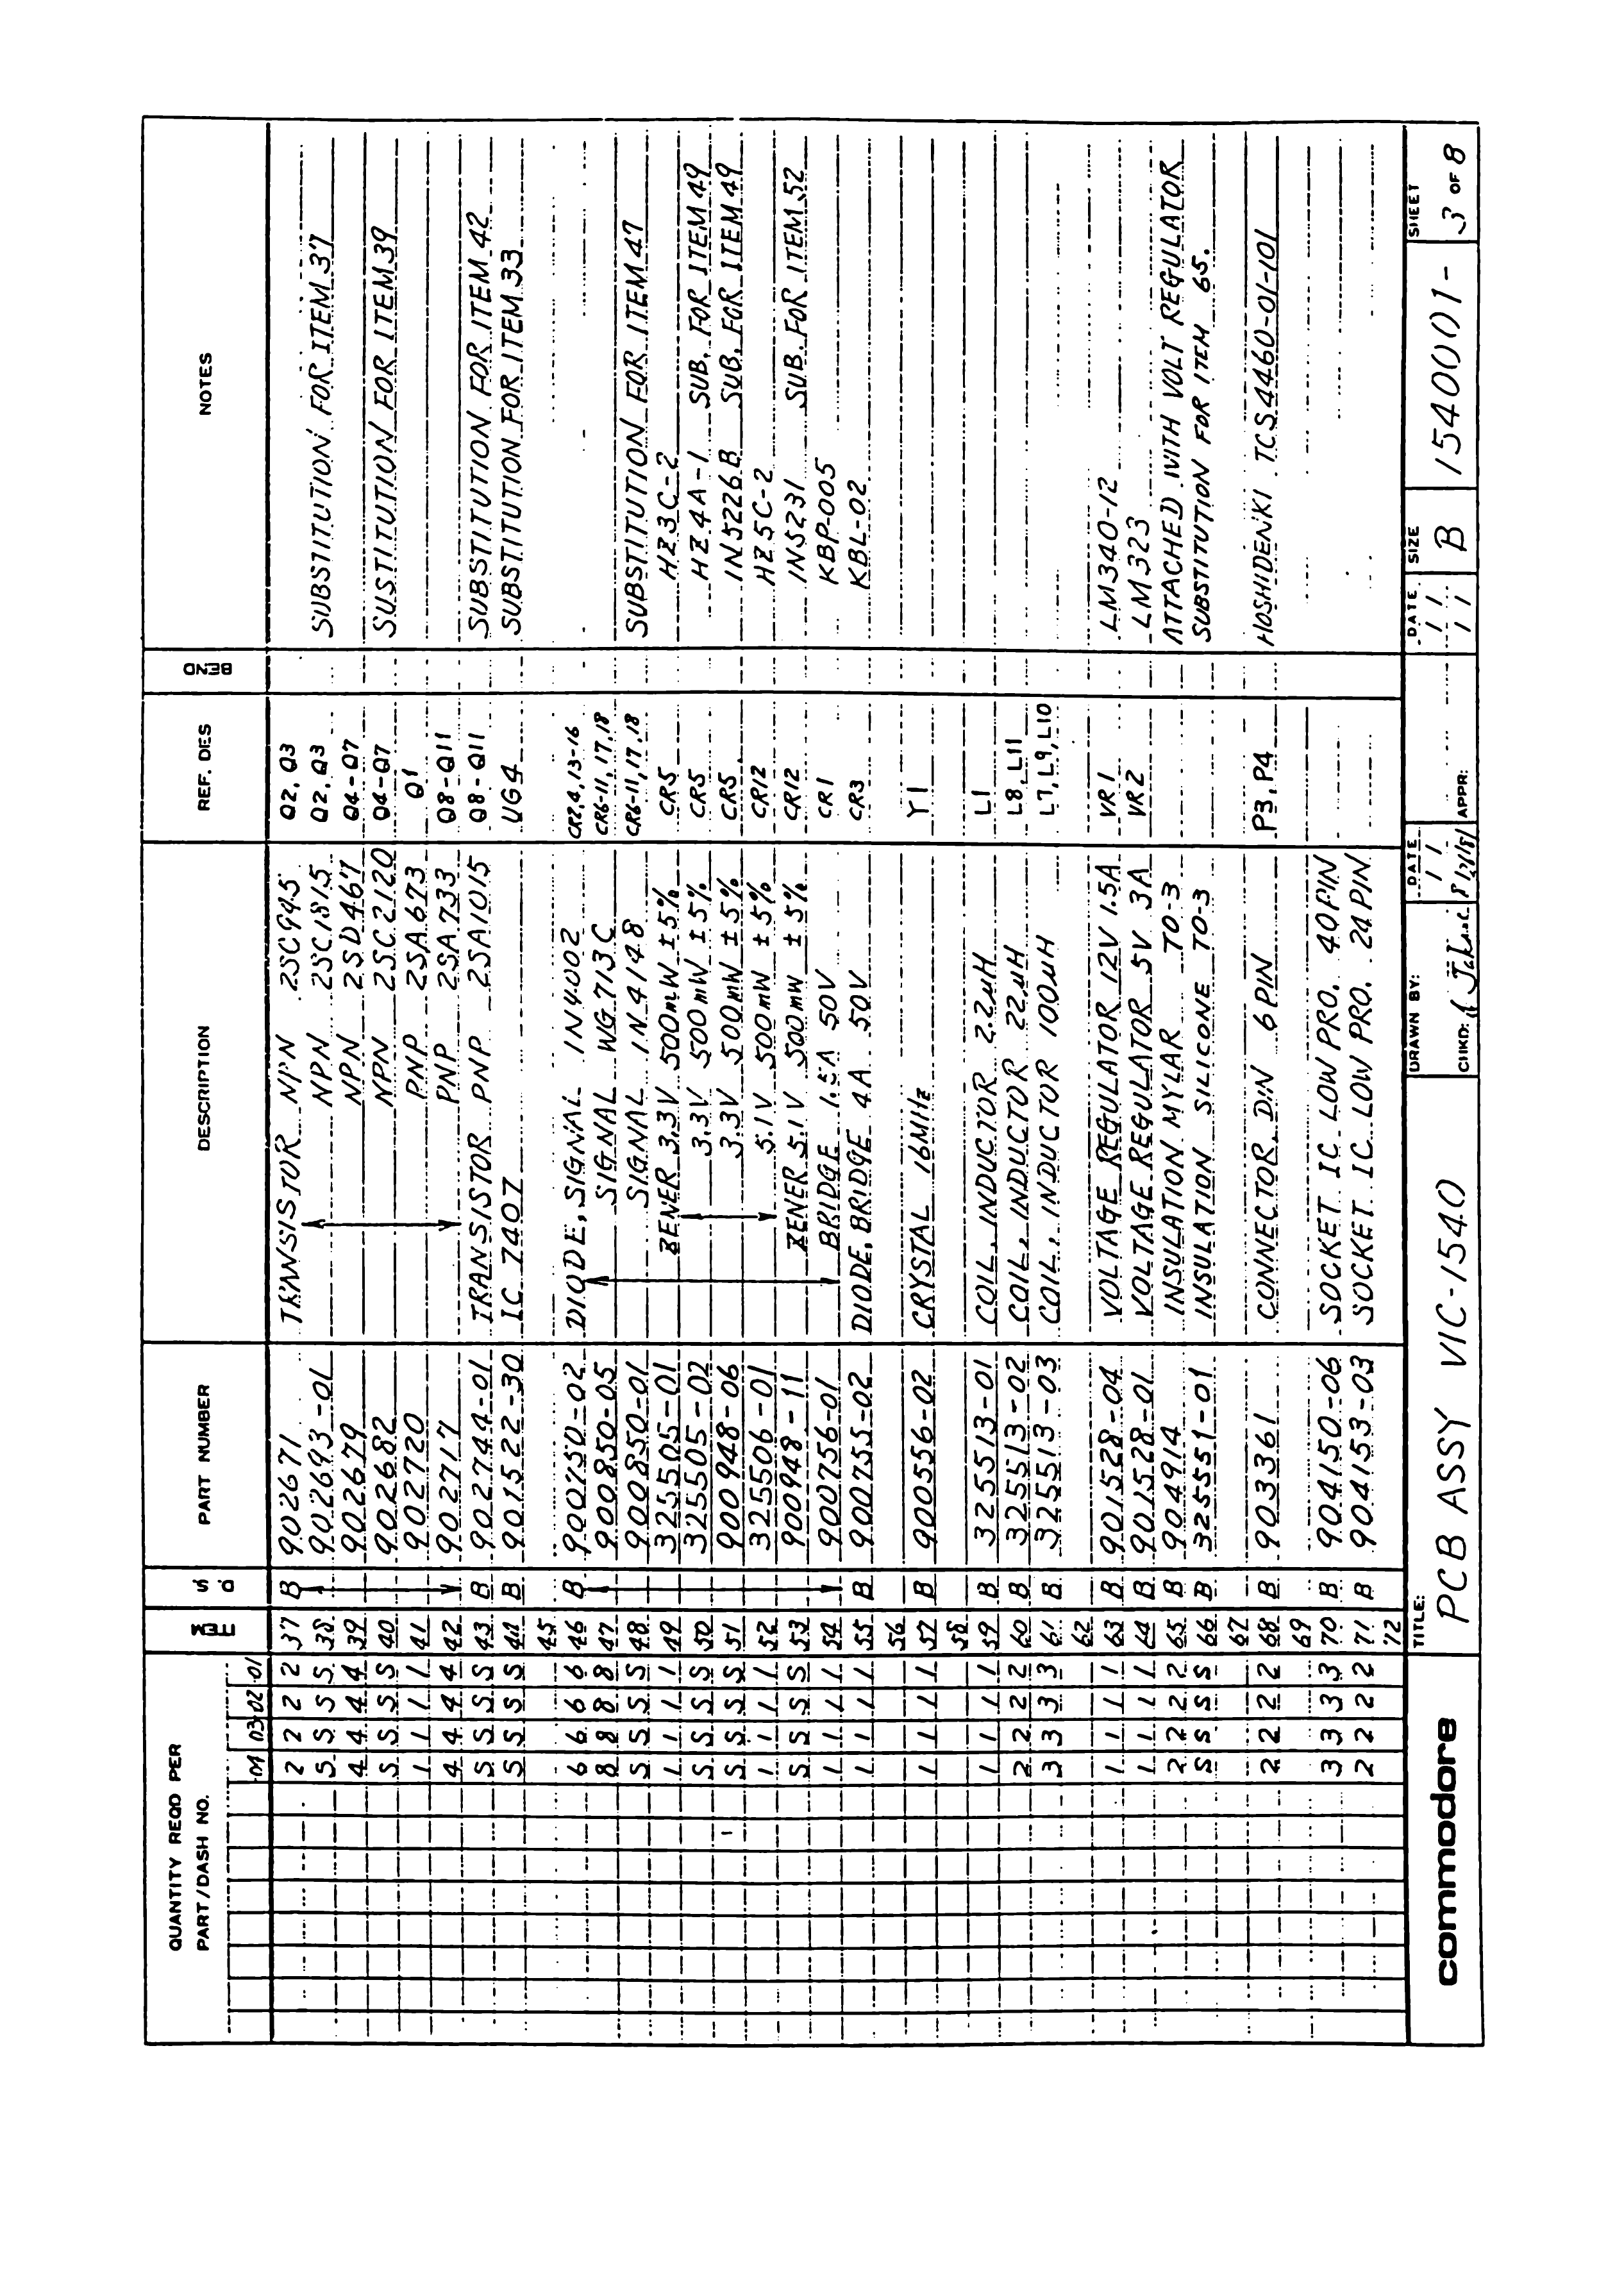 QUANTITY REQD PER PART/DASH NO. ITEM S O PART NUMBER DESCRIPTION REF. DES BEND NOTES
04 03 02 01
2 2 2 2 37 B 902671 TRANSISTOR NPN 2SC945 Q2, Q3
S S S S 38 902693-01 NPN 2SC1815 Q2, Q3 SUBSTITUTION FOR ITEM 37
4 4 4 4 39 902679 NPN 2SD467 Q4-Q7
S S S S 40 902682 NPN 2SC2120 Q4-Q7 SUSTITUTION FOR ITEM 39
1 1 1 1 41 902720 PNP 2SA673 Q1
4 4 4 4 42 902717 PNP 2SA733 Q8-Q11
S S S S 43 B 902744-01 TRANSISTOR PNP 2SA1015 Q8-Q11 SUBSTITUTION FOR ITEM 42
S S S S 44 B 901522-30 IC 7407 UG4 SUBSTITUTION FOR ITEM 33
45
6 6 6 6 46 B 900750-02 DIODE, SIGNAL IN4002 CR2,4,13-16
8 8 8 8 47 900850-05 SIGNAL WG713C CR6-11,17,18
S S S S 48 900850-01 SIGNAL IN4148 CR6-11,17,18 SUBSTITUTION FOR ITEM 47
1 1 1 1 49 325505-01 ZENER 3.3V 500mW ±5% CR5 HZ3C-2
S S S S 50 325505-02 3.3V 500mW ±5% CR5 HZ4A-1 SUB. FOR ITEM 49
S S S S 51 900948-06 3.3V 500mW ±5% CR5 IN5226B SUB. FOR ITEM 49
1 1 1 1 52 325506-01 5.1V 500mW ±5% CR12 HZ5C-2
S S S S 53 900948-11 ZENER 5.1V 500mW ±5% CR12 IN5231 SUB. FOR ITEM 52
1 1 1 1 54 900756-01 BRIDGE 1.5A 50V CR1 KBP-005
1 1 1 1 55 B 900755-02 DIODE, BRIDGE 4A 50V CR3 KBL-02
56
1 1 1 1 57 B 900556-02 CRYSTAL 16MHz Y1
58
1 1 1 1 59 B 325513-01 COIL, INDUCTOR 2.2µH L1
2 2 2 2 60 B 325513-02 COIL, INDUCTOR 22µH L8, L11
3 3 3 3 61 B 325513-03 COIL, INDUCTOR 100µH L7, L9, L10
62
1 1 1 1 63 B 901528-04 VOLTAGE REGULATOR 12V 1.5A VR1 LM340-12
1 1 1 1 64 B 901528-01 VOLTAGE REGULATOR 5V 3A VR2 LM323
2 2 2 2 65 B 904914 INSULATION MYLAR TO-3 ATTACHED WITH VOLT REGULATOR
S S S S 66 B 325551-01 INSULATION SILICONE TO-3 SUBSTITUTION FOR ITEM 65.
67
2 2 2 2 68 B 903361 CONNECTOR DIN 6PIN P3, P4 HOSHIDENKI TCS4460-01-101
69
3 3 3 3 70 B 904150-06 SOCKET IC LOW PRO. 40PIN
2 2 2 2 71 B 904153-03 SOCKET IC LOW PRO. 24PIN
72
commodore TITLE: PCB ASSY VIC-1540 DRAWN BY: DATE / / APPR: DATE / / SIZE B 1540001- SHEET 3 OF 8
CHKD: